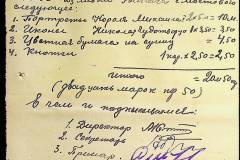 следующее:
1. Портреты Короля Михаила 2 x 50 = 10 м.
2. Иконы Николая Чудотворца 1 x 350 = 3 50
3. Цветная бумага на сумму = 4 50
4. Кнопки 1 кор. x 2,50 = 2,50
итого = 20 м 50
(двадцать марок пф 50)
В чем и подписываемся
1. Директор
2. Секретарь
3.